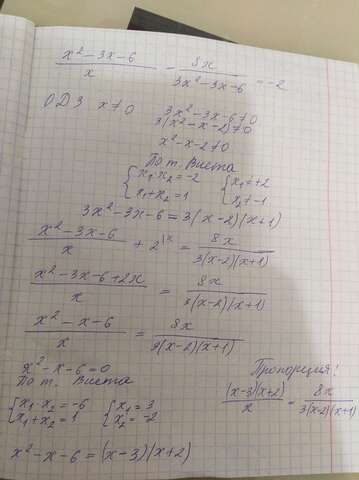 (x²-3x-6)/x - 8x/(3x²-3x-6) = -2
ОДЗ x≠0 3x²-3x-6≠0
3(x²-x-2)≠0
x²-x-2≠0
По т. Виета
{x₁·x₂=-2 {x₁=+2
{x₁+x₂=1 {x₂≠-1
3x²-3x-6=3(x-2)(x+1)
(x²-3x-6)/x + 2^(\x) = 8x/(3(x-2)(x+1))
(x²-3x-6+2x)/x = 8x/(3(x-2)(x+1))
(x²-x-6)/x = 8x/(3(x-2)(x+1))
x²-x-6=0
По т. Виета
{x₁·x₂=-6 {x₁=3
{x₁+x₂=1 {x₂=-2
x²-x-6=(x-3)(x+2)
Пропорция!
((x-3)(x+2))/x = 8x/(3(x-2)(x+1))